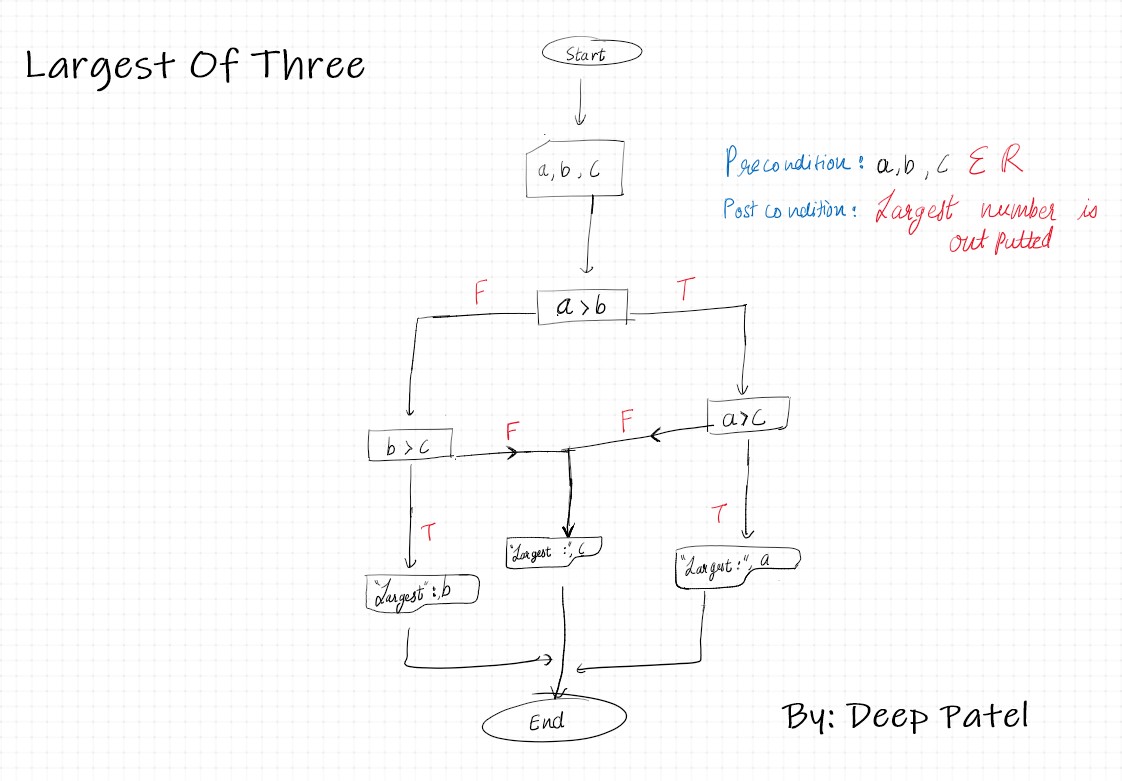 Largest Of Three
Start
a, b, c
Precondition: a, b, c Ɛ R
Postcondition: Largest number is
outputted
F
T
a > b
F
F
a > c
b > c
T
T
"Largest :", c
"Largest :", a
"Largest" :, b
End
By: Deep Patel